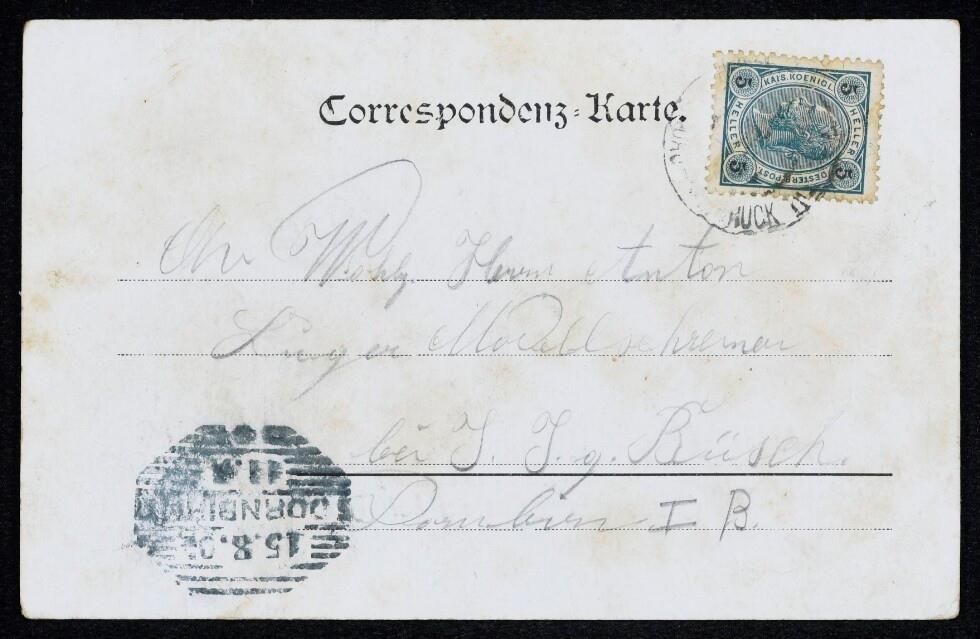 Correspondenz-Karte.
5 KAIS. KOENIGL. 5
HELLER HELLER
5 OESTERR. POST. 5
UCK
An Wohlg. Herrn Anton
Modellschreiner
bei J. Ig. Rüsch.
Dornbirn I B.
DORNBIRN
15.8.0
11.